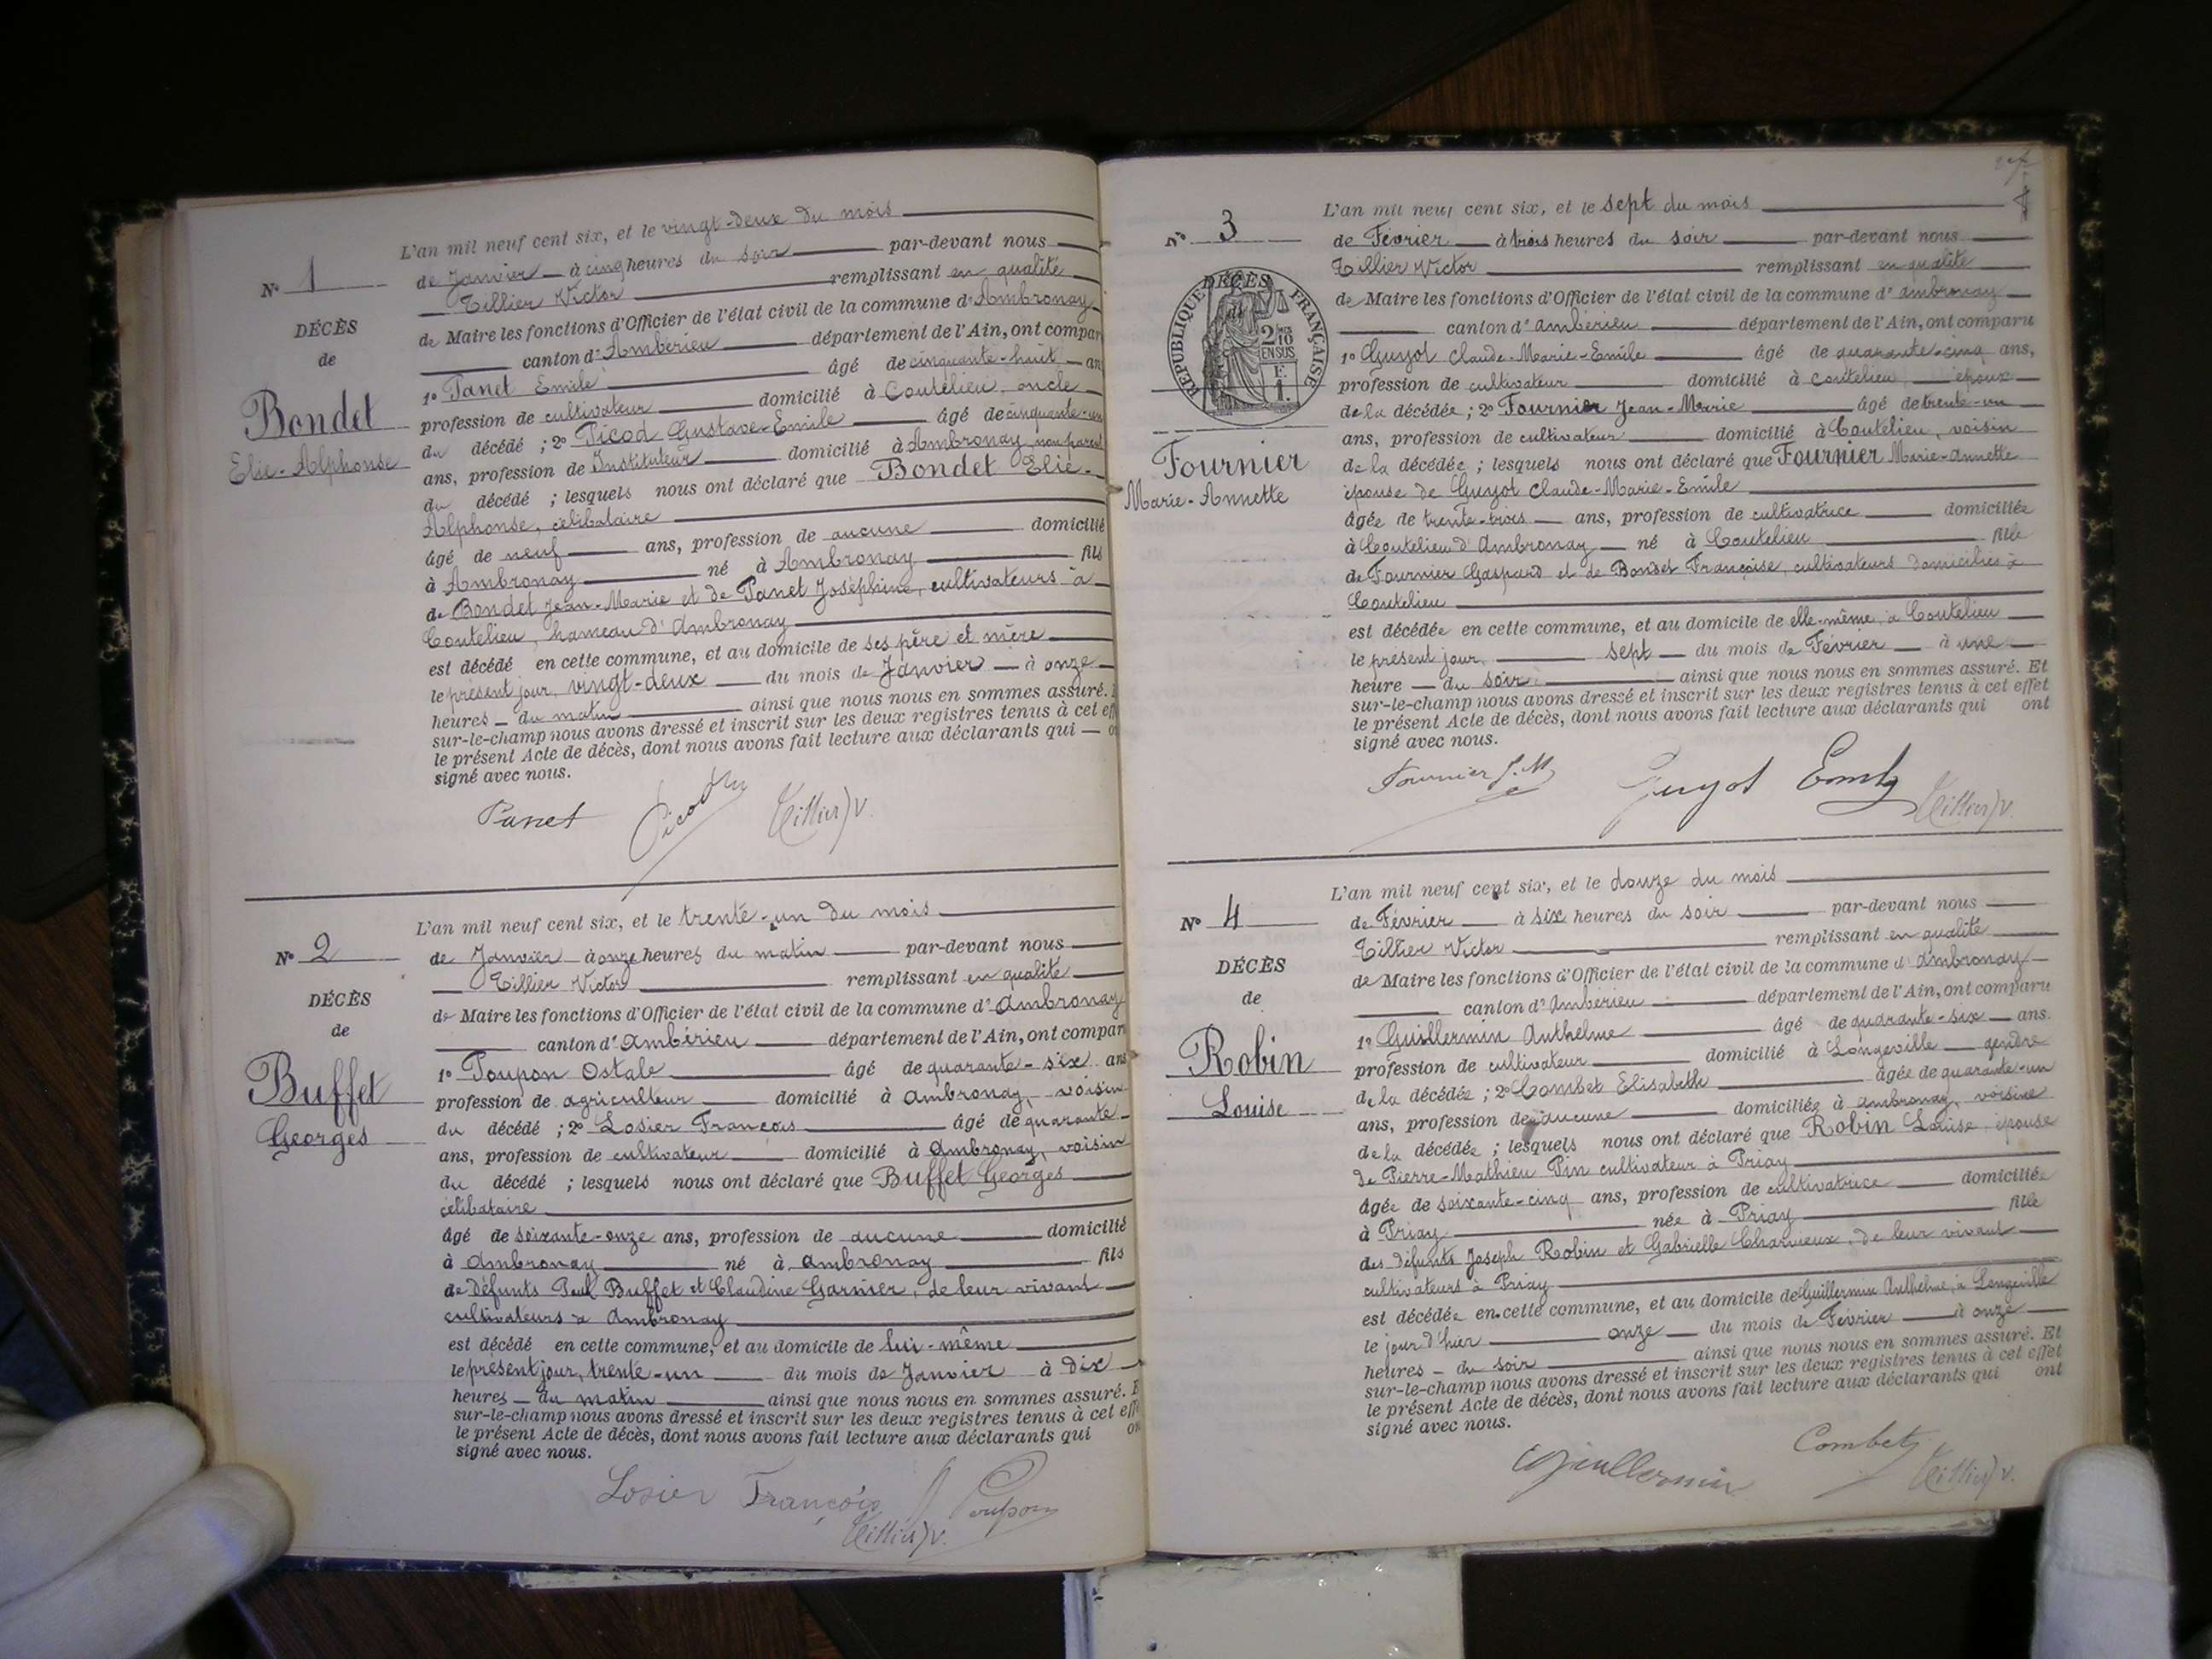 L'an mil neuf cent six, et le vingt-deux du mois
Nº 1
de Janvier à cinq heures du soir par-devant nous
Tillier Victor remplissant en qualité
DÉCÈS
de Maire les fonctions d'Officier de l'état civil de la commune d'Ambronay
de
canton d'Ambérieu département de l'Ain, ont compar
1º Panet Emile âgé de cinquante-huit an
Bondet
profession de cultivateur domicilié à Coutelieu, oncle
Elie-Alphonse
du décédé ; 2º Picod Gustave-Emile âgé de cinquante-un
ans, profession de Instituteur domicilié à Ambronay non parent
du décédé ; lesquels nous ont déclaré que Bondet Elie-
Alphonse, célibataire
âgé de neuf ans, profession de aucune domicilié
à Ambronay né à Ambronay fils
de Bondet Jean-Marie et de Panet Joséphine, cultivateurs à
Coutelieu, hameau d'Ambronay
est décédé en cette commune, et au domicile de ses père et mère
le présent jour, vingt-deux du mois de Janvier à onze
heures du matin ainsi que nous nous en sommes assuré.
sur-le-champ nous avons dressé et inscrit sur les deux registres tenus à cet eff
le présent Acte de décès, dont nous avons fait lecture aux déclarants qui o
signé avec nous.
Panet Picod Tillier V.
L'an mil neuf cent six, et le trente-un du mois
Nº 2
de Janvier à onze heures du matin par-devant nous
Tillier Victor remplissant en qualité
DÉCÈS
de Maire les fonctions d'Officier de l'état civil de la commune d'Ambronay
de
canton d'Ambérieu département de l'Ain, ont compar
1º Poupon Ostale âgé de quarante-six ans
Buffet
profession de agriculteur domicilié à Ambronay, voisin
Georges
du décédé ; 2º Losier François âgé de quarante
ans, profession de cultivateur domicilié à Ambronay, voisin
du décédé ; lesquels nous ont déclaré que Buffet Georges
célibataire
âgé de soixante-onze ans, profession de aucune domicilié
à Ambronay né à Ambronay fils
de défunts Paul Buffet et Claudine Garnier, de leur vivant
cultivateurs à Ambronay
est décédé en cette commune, et au domicile de lui-même
le présent jour, trente-un du mois de Janvier à dix
heures du matin ainsi que nous nous en sommes assuré. E
sur-le-champ nous avons dressé et inscrit sur les deux registres tenus à cet effe
le présent Acte de décès, dont nous avons fait lecture aux déclarants qui on
signé avec nous.
Losier François Poupon
Tillier V.
L'an mil neuf cent six, et le sept du mois
Nº 3
de Février à trois heures du soir par-devant nous
Tillier Victor remplissant en qualité
DÉCÈS
de
RÉPUBLIQUE FRANÇAISE
2/10 EN SUS
F. 1.
de Maire les fonctions d'Officier de l'état civil de la commune d'Ambronay
canton d'Ambérieu département de l'Ain, ont comparu
1º Guyot Claude-Marie-Emile âgé de quarante-cinq ans,
profession de cultivateur domicilié à Coutelieu époux
de la décédée ; 2º Fournier Jean-Marie âgé de trente-un
ans, profession de cultivateur domicilié à Coutelieu, voisin
Fournier
Marie-Annette
de la décédée ; lesquels nous ont déclaré que Fournier Marie-Annette
épouse de Guyot Claude-Marie-Emile
âgée de trente-trois ans, profession de cultivatrice domiciliée
à Coutelieu d'Ambronay né à Coutelieu fille
de Fournier Gaspard et de Bondet Françoise, cultivateurs domiciliés à
Coutelieu
est décédée en cette commune, et au domicile de elle-même, à Coutelieu
le présent jour, sept du mois de Février à une
heure du soir ainsi que nous nous en sommes assuré. Et
sur-le-champ nous avons dressé et inscrit sur les deux registres tenus à cet effet
le présent Acte de décès, dont nous avons fait lecture aux déclarants qui ont
signé avec nous.
Fournier J.M Guyot Emile Tillier V.
L'an mil neuf cent six, et le douze du mois
Nº 4
de Février à six heures du soir par-devant nous
Tillier Victor remplissant en qualité
DÉCÈS
de Maire les fonctions d'Officier de l'état civil de la commune d'Ambronay
de
canton d'Ambérieu département de l'Ain, ont comparu
1º Guillermin Anthelme âgé de quarante-six ans.
Robin
profession de cultivateur domicilié à Longeville gendre
Louise
de la décédée ; 2º Combet Elisabeth âgée de quarante-un
ans, profession de aucune domiciliée à Ambronay, voisine
de la décédée ; lesquels nous ont déclaré que Robin Louise, épouse
de Pierre-Mathieu Pin cultivateur à Priay
âgée de soixante-cinq ans, profession de cultivatrice domiciliée
à Priay née à Priay fille
des défunts Joseph Robin et Gabrielle Charvieux, de leur vivant
cultivateurs à Priay
est décédée en cette commune, et au domicile de Guillermin Anthelme, à Longeville
le jour d'hier onze du mois de Février à onze
heures du soir ainsi que nous nous en sommes assuré. Et
sur-le-champ nous avons dressé et inscrit sur les deux registres tenus à cet effet
le présent Acte de décès, dont nous avons fait lecture aux déclarants qui ont
signé avec nous.
Guillermin Combet Tillier V.